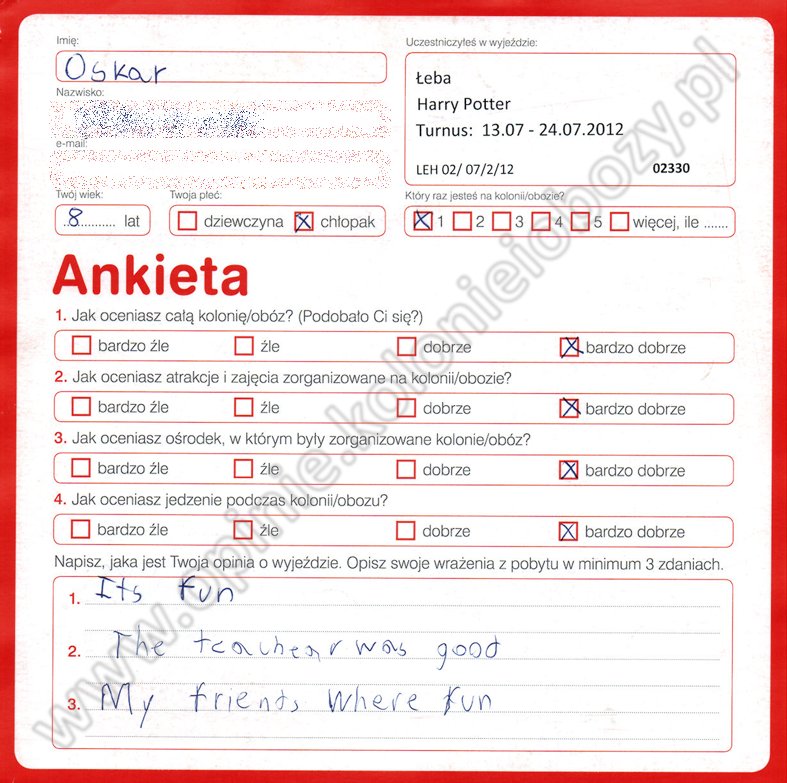 Imię:
Oskar
Uczestniczyłeś w wyjeździe:
Łeba
Harry Potter
Turnus: 13.07 - 24.07.2012
LEH 02/ 07/2/12 02330
Nazwisko:
e-mail:
Twój wiek:
8 lat
Twoja płeć:
dziewczyna chłopak
Który raz jesteś na kolonii/obozie?
1 2 3 4 5 więcej, ile .......
Ankieta
1. Jak oceniasz całą kolonię/obóz? (Podobało Ci się?)
bardzo źle źle dobrze bardzo dobrze
2. Jak oceniasz atrakcje i zajęcia zorganizowane na kolonii/obozie?
bardzo źle źle dobrze bardzo dobrze
3. Jak oceniasz ośrodek, w którym były zorganizowane kolonie/obóz?
bardzo źle źle dobrze bardzo dobrze
4. Jak oceniasz jedzenie podczas kolonii/obozu?
bardzo źle źle dobrze bardzo dobrze
Napisz, jaka jest Twoja opinia o wyjeździe. Opisz swoje wrażenia z pobytu w minimum 3 zdaniach.
1. Its fun
2. The teachear was good
3. My friends where fun
www.opinie.kolonieiobozy.pl